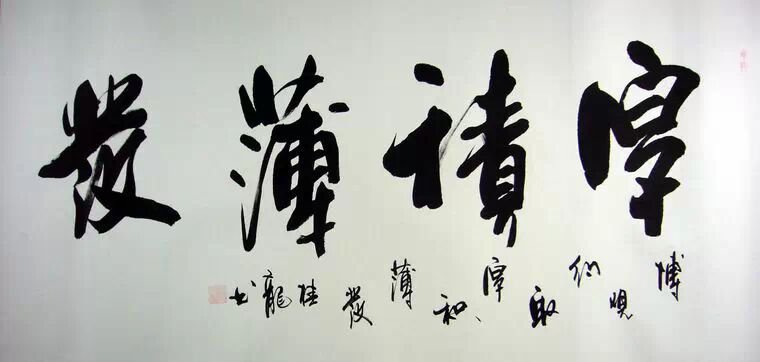 厚積薄發
博觀約取厚積薄發桂龍书